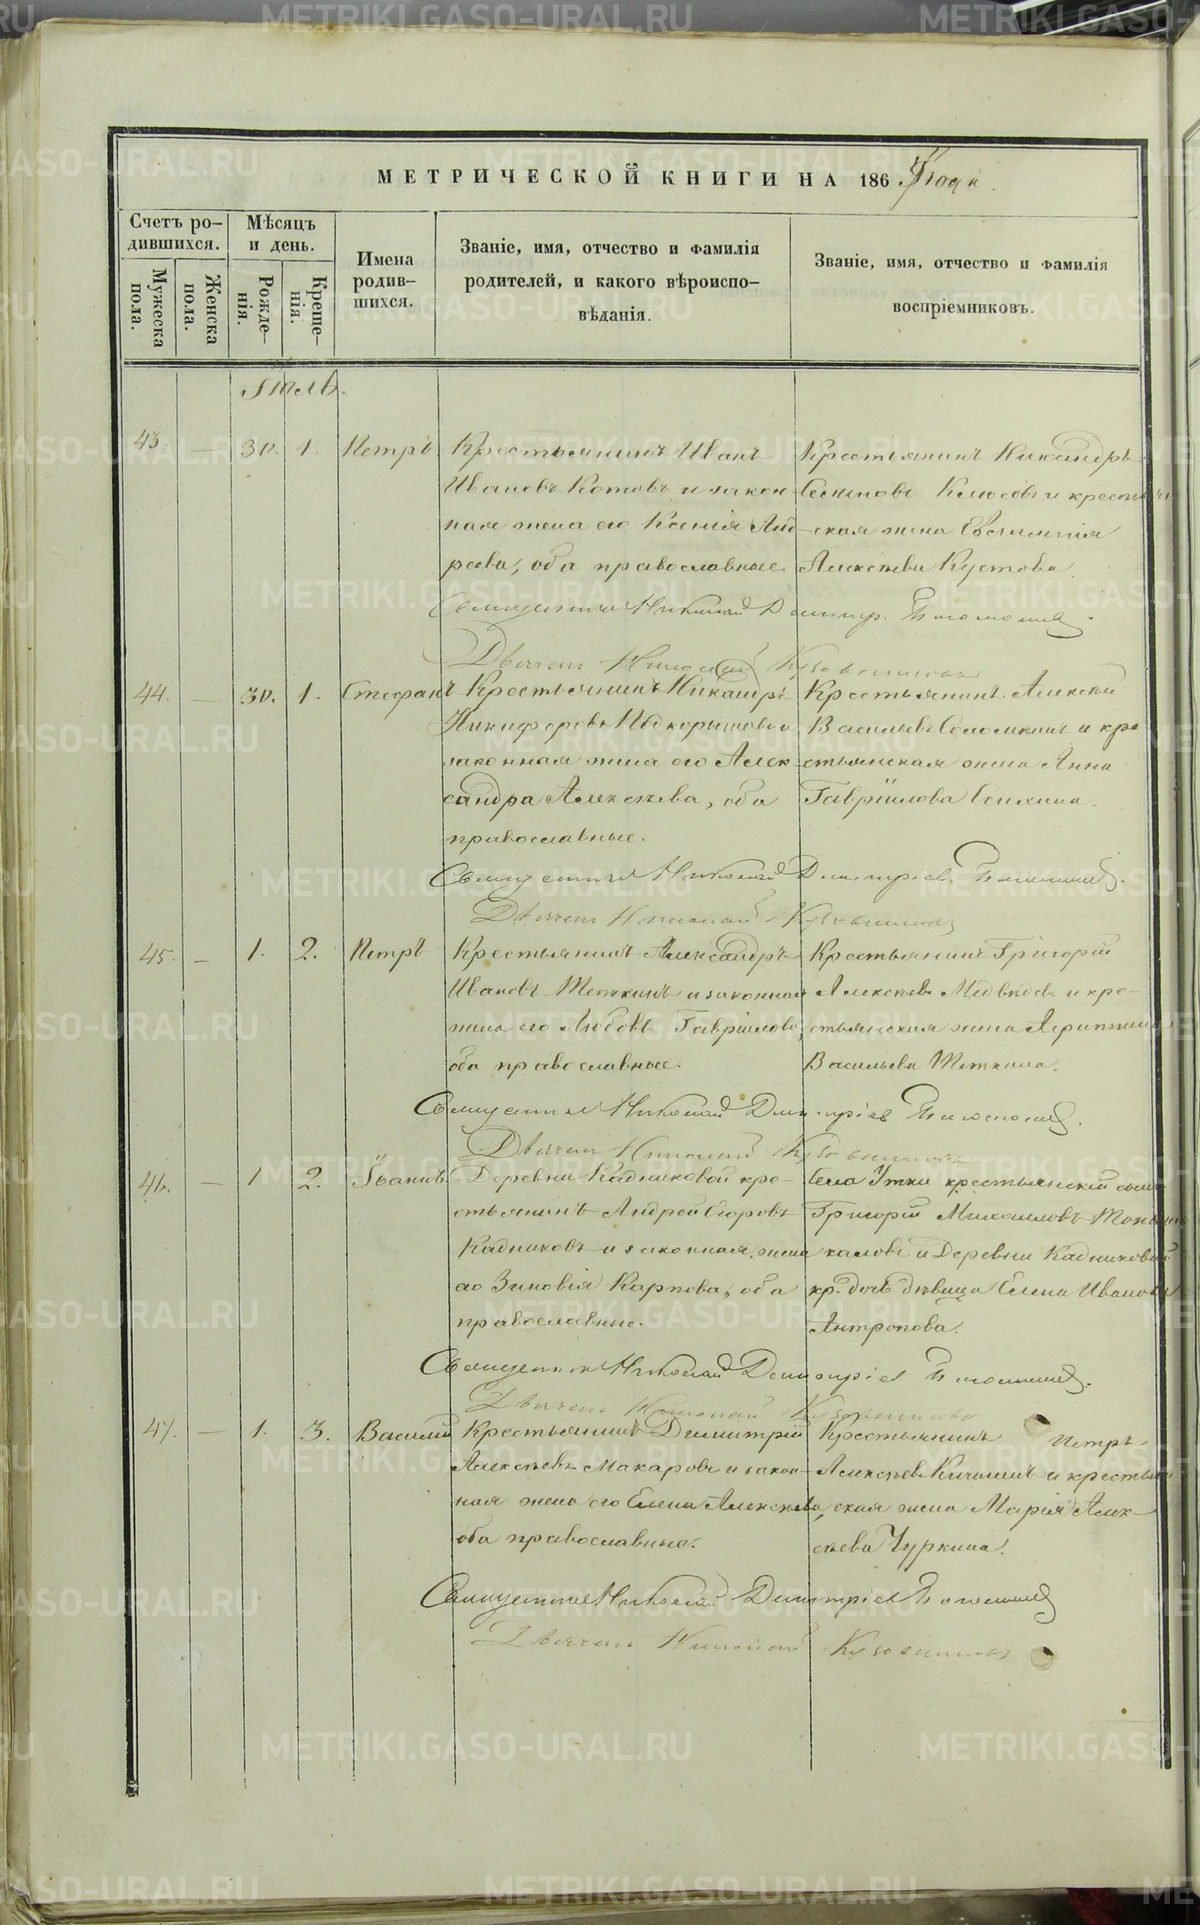 МЕТРИЧЕСКОЙ КНИГИ НА 186 года
Счетъ ро-
дившихся.
Мужеска
пола.
Женска
пола.
Мѣсяцъ
и день.
Рожде-
нія.
Креще-
нія.
Имена
родив-
шихся.
Званіе, имя, отчество и фамилія
родителей, и какого вѣроиспо-
вѣданія.
Званіе, имя, отчество и фамилія
воспріемниковъ.
Іюль.
43. — 30. 1. Петръ
Крестьянинъ Иванъ
Ивановъ Котовъ и закон
ная жена его Ксенія Анд
реева, оба православные.
Крестьянинъ Никандръ
Клюсовъ и крестьян
ская жена Евгенія
Алексѣева Кустова
Священникъ Николай Димитр.
Дьячекъ Николай Кузовниковъ
44. — 30. 1. Стефанъ
Крестьянинъ
Никифоровъ и
законная жена его Алек
сандра Алексѣева, оба
православные.
Крестьянинъ Алексѣй
Васильевъ и кре
стьянская жена Анна
Гавріилова Сенкина.
Священникъ Николай Димитріев
Дьячекъ Николай Кузовниковъ
45. — 1. 2. Петръ
Крестьянинъ Александръ
Ивановъ Теткинъ и законная
жена его Любовь Гавріилова,
оба православные.
Крестьянинъ Григорій
Алексѣевъ Медвѣдевъ и кре-
стьянская жена Агрипина
Васильева Теткина.
Священникъ Николай Димитріев
Дьячекъ Николай Кузовниковъ
46. — 1 2. Іоаннъ
Деревни Кадниковой кре-
стьянинъ Андрей Егоровъ
Кадниковъ и законная жена
его Зиновія Карпова, оба
православные.
Села Утки крестьянскій сынъ
Григорій Михаиловъ
и Деревни Кадниковой
кр. дочь дѣвица Елена Иванова
Антропова.
Священникъ Николай Димитріев
Дьячекъ Николай Кузовниковъ
47. — 1. 3. Василій
Крестьянинъ Димитрій
Алексѣевъ Макаровъ и закон-
ная жена его Елена Алексѣева,
оба православные.
Крестьянинъ Петръ
Алексѣевъ и крестьян
ская жена Марія Алек-
сѣева Чуркина.
Священникъ Николай Димитріев
Дьячекъ Николай Кузовниковъ
METRIKI.GASO-URAL.RU